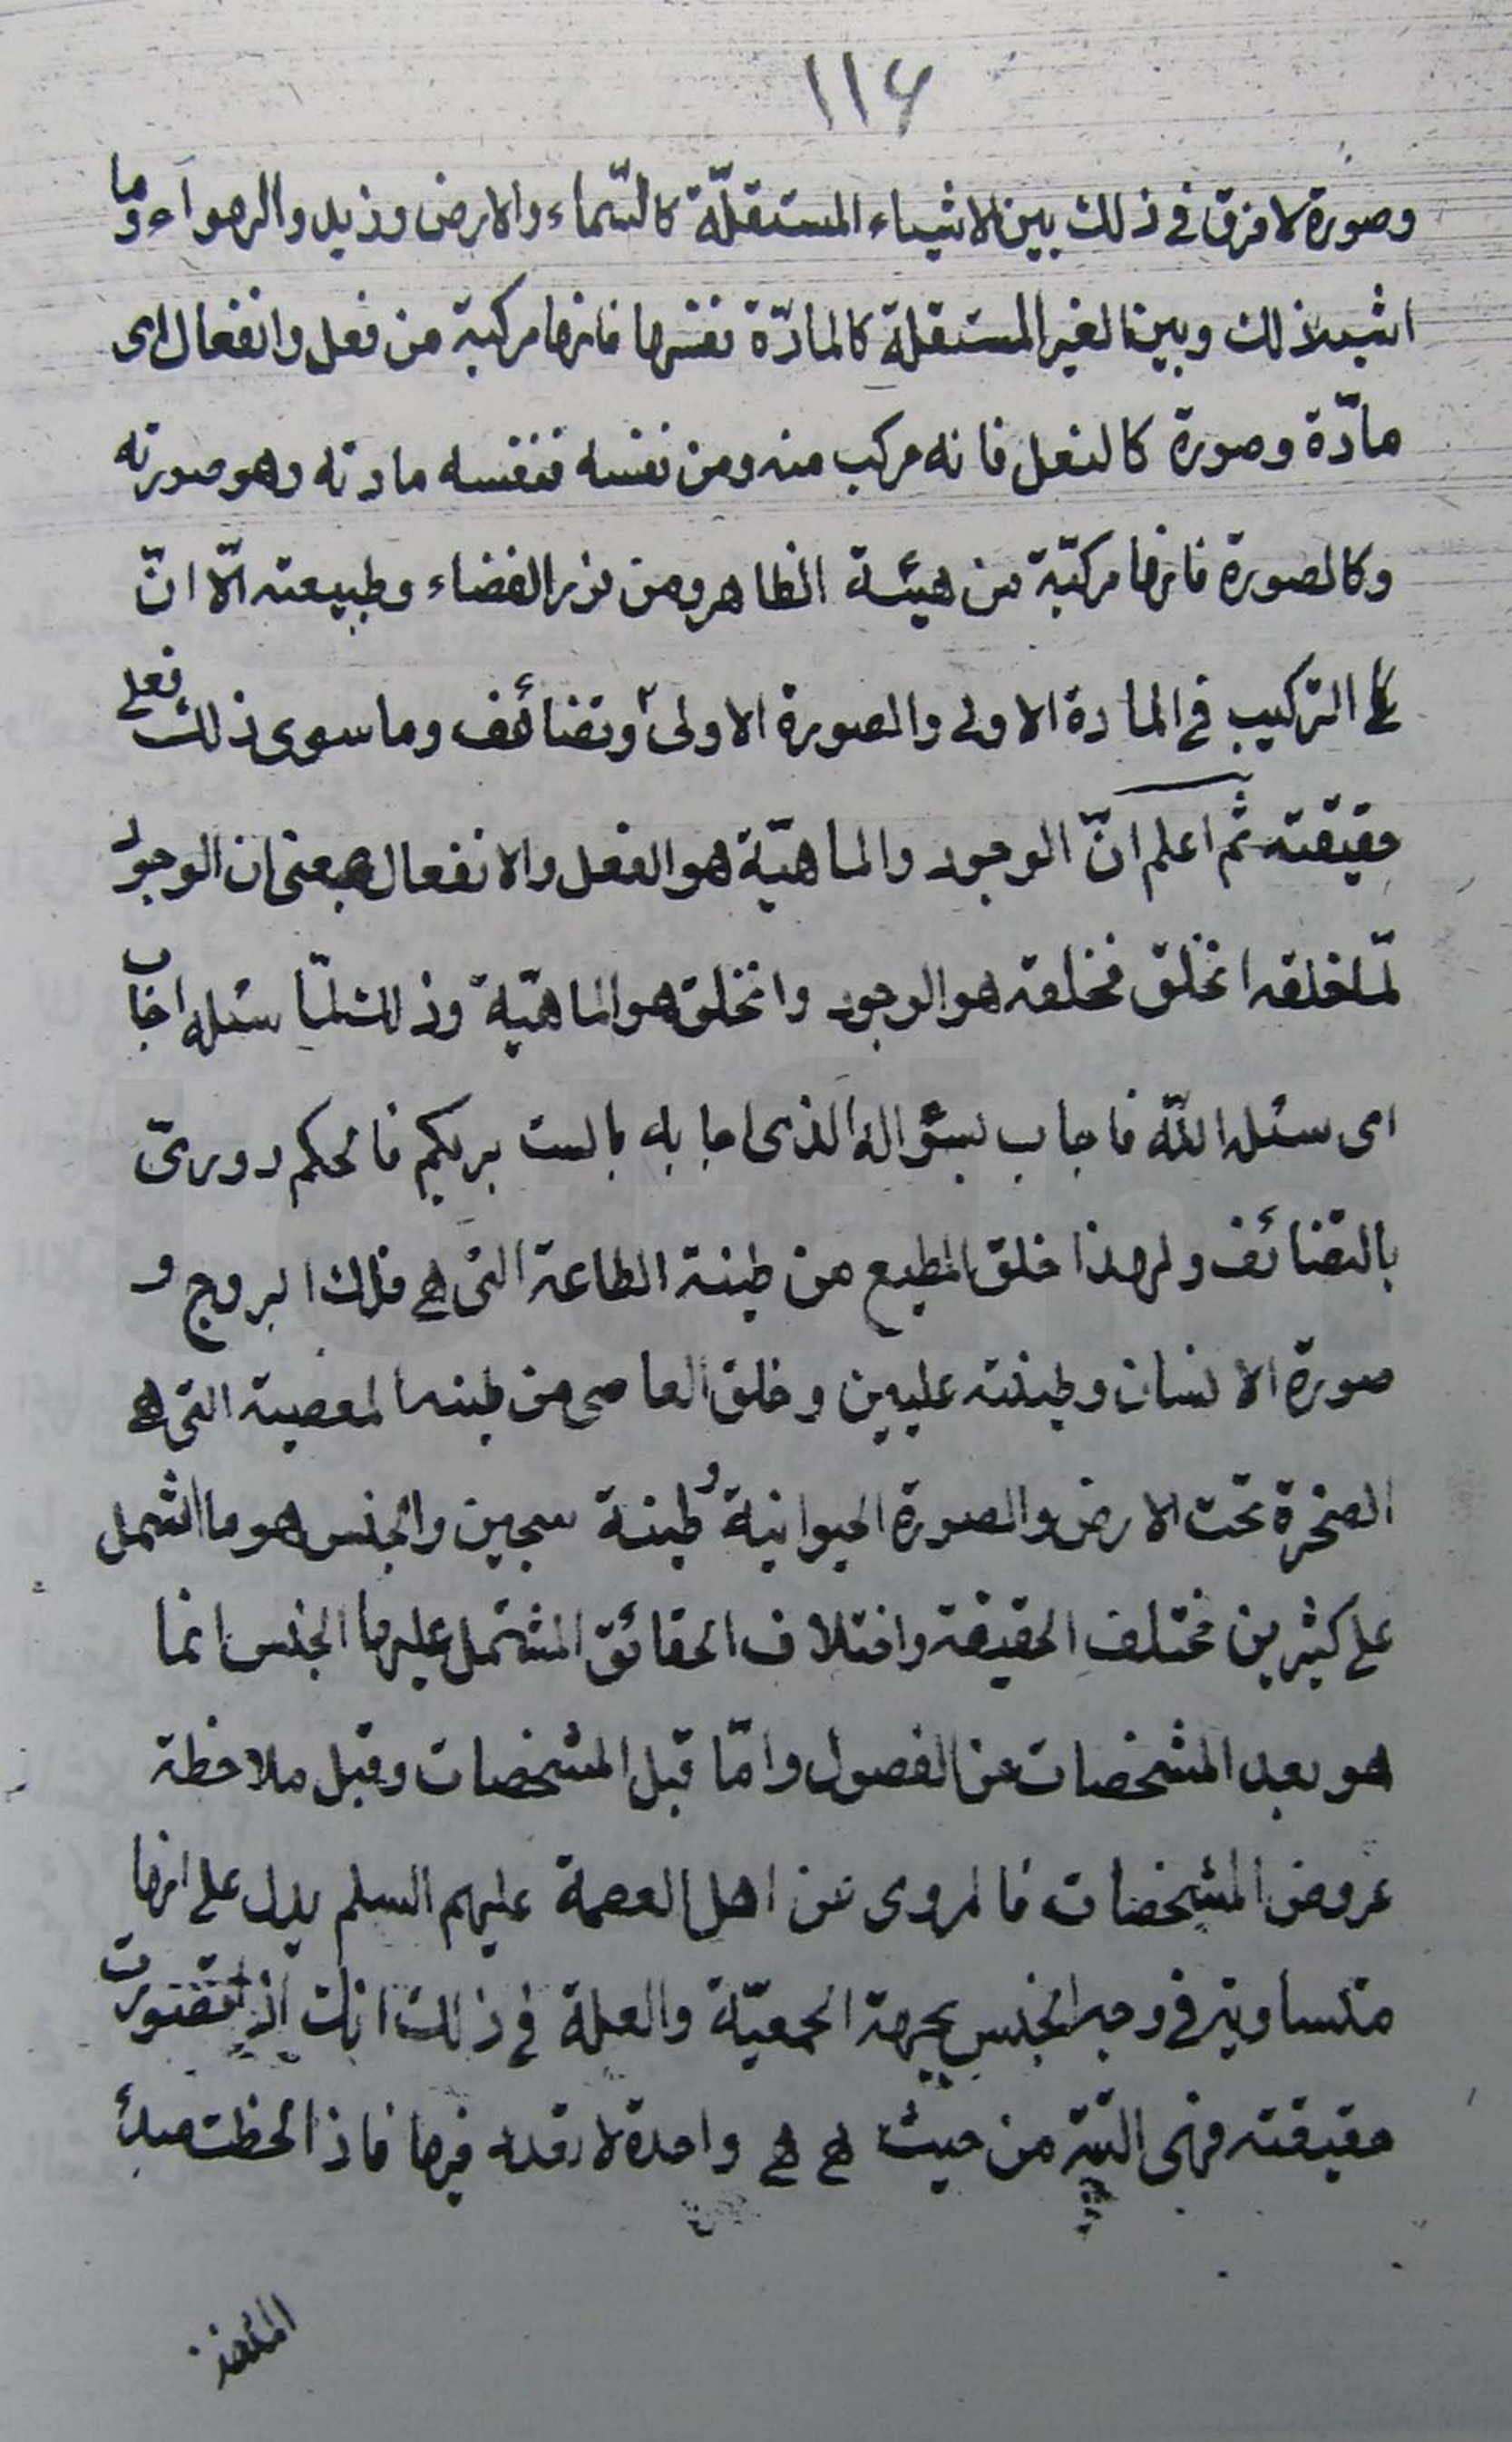 ١١٦
وصورة لا فرق في ذلك بين الاشياء المستقلّة كالسّماء والارض وزيد والهوآء وما
اشبه ذلك وبين الغير المستقلة كالمادّة نفسها فانها مركبة من فعل وانفعال اى
مادّة وصورة كالفعل فانه مركب منه ومن نفسه فنفسه مادته وهو صورته
وكالصورة فانها مركبّة من هيئة الظاهر ومن نور الفضاء وطبيعته الّا انّ
التركيب في المادة الاولى والصورة الاولى وتضائف وما سوى ذلك فعلى
حقيقته ثم اعلم انّ الوجود والماهيّة هو الفعل والانفعال بمعنى ان الوجود
لمّا خلقه انخلق فخلقه هو الوجود وانخلق هو الماهيّة وذلك لمّا سئله اجاب
اى سئله اللّه فاجاب بسؤاله الذى اجابه بالست بربكم فالحكم دورىّ
بالتضائف ولهذا خلق المطيع من طينة الطاعة التى هى فلك البروج و
صورة الانسان وطينته عليين وخلق العاصى من طينه المعصية التى هى
الصخرة تحت الارض والصورة الحيوانية وطينة سجين والجنس هو ما اشتمل
على كثيرين مختلف الحقيقة واختلاف الحقائق المشتمل عليها الجنس انما
هو بعد المشخصات عن الفصول وامّا قبل المشخصات وقبل ملاحظة
عروض المشخصات فالمروى عن اهل العصمة عليهم السلم يدل على انها
متساوية في وجه الجنس بجهة الجمعيّة والعلة في ذلك انك اذا تصورت
حقيقته فهى البتة من حيث هى هى واحدة لا تعدد فيها فاذا لحظت مبدأ